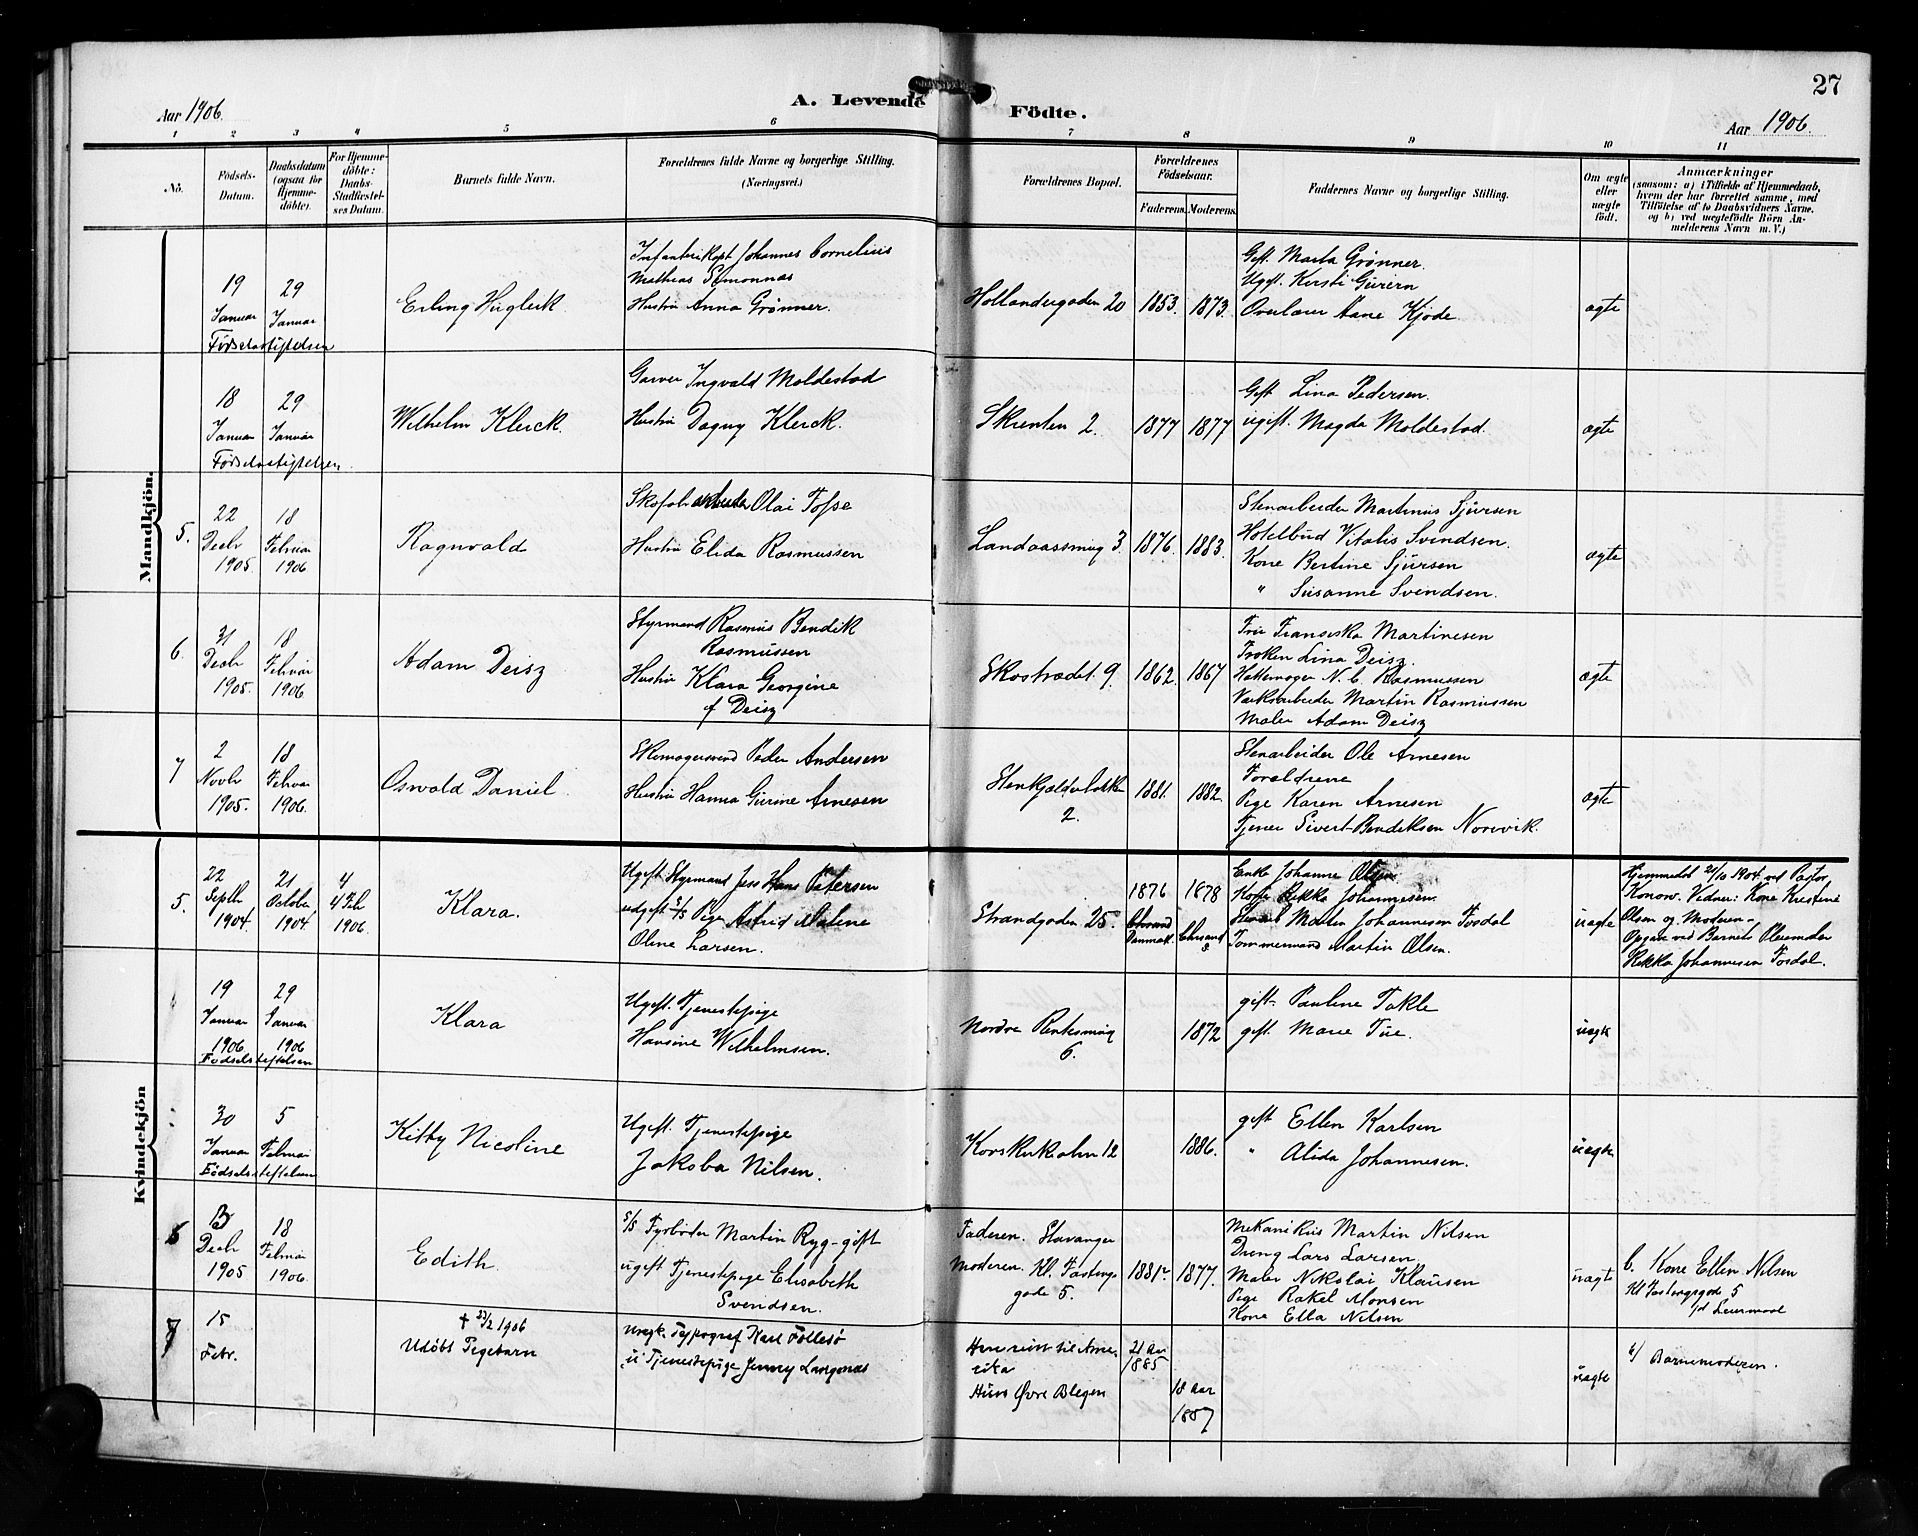 27
Aar 1906.
A. Levende Födte.
Aar 1906.
1 2 3 4 5 6 7 8 9 10 11
No.
Födsels-
Datum.
Daabsdatum
(ogsaa for
Hjemme-
döbte).
For Hjemme-
döbte:
Daabs-
Stadfæstel-
ses Datum.
Barnets fulde Navn.
Forældrenes fulde Navne og borgerlige Stilling.
(Næringsvei.)
Forældrenes Bopæl.
Forældrenes
Födselsaar.
Faderens. Moderens.
Faddernes Navne og borgerlige Stilling.
Om ægte
eller
uægte
födt.
Anmærkninger
(saasom: a) i Tilfælde af Hjemmedaab,
hvem der har forrettet samme, med
Tilföielse af to Daabsvidners Navne.
og b) ved uægtefödte Börn An-
melderens Navn m. V.)
Mandkjön.
19
Januar
29
Januar
Fødselsstiftelsen
Erling Hugleik
Infanterikapt Johannes Cornelius
Mathias
Hustru Anna Grønner.
Hollandergaden 20
1853.
1873.
Gift. Marta Grønner.
Ugift. Kirsti
Overlærer Aane Kjøde.
ægte
18
Januar
29
Januar
Fødselsstiftelsen.
Wilhelm Klerck.
Garver Ingvald Moldestad
Hustru Dagny Klerck.
Skrenten 2.
1877
1877
Gift Lina Pedersen.
ugift. Magda Moldestad.
ægte
5.
22
Decbr
1905.
18
Februar
1906
Ragnvald
Skofabr arbeider Olai Fosse
Hustru Elida Rasmussen
Landaassmug 3.
1876.
1883.
Stenarbeider Martinus Sjursen
Hotelbud Vitalis Svendsen.
Kone Bertine Sjursen
" Susanne Svendsen.
ægte
6.
31
Decbr
1905.
18
Februar
1906
Adam Deisz
Styrmand Rasmus Bendik
Rasmussen
Hustru Klara Georgine
f Deisz
Skostrædet 9.
1862.
1867
Fru Fransiska Martinesen
Frøken Lina Deisz.
Hattemager N. C. Rasmussen
Værksarbeider Martin Rasmussen
Maler Adam Deisz
ægte
7
2
Novbr
1905.
18
Februar
1906.
Oswald Daniel.
Skomagersvend Peder Andersen
Hustru Hanna Gurine Arnesen
Stenkjælderbakken
2.
1881.
1882.
Stenarbeider Ole Arnesen
Forældrene
Pige Karen Arnesen
Tjener Sivert Bendiksen Norevik.
ægte
Kvindekjön
5.
22
Septbr
1904.
21
October
1904.
4
Febr
1906.
Klara.
Ugift Styrmand Jess Hans Petersen
udgift S/S Pige Astrid Malene
Oline Larsen.
Strandgaden 25.
1876
Danmark
1878
Chrsand
S
Enke Johanne Olsen
Kone Rikka Johannesen.
Malen Johannesen Fosdal
Tømmermand Martin Olsen.
uægte
Hjemmedbt 21/10 1904 ved Pastor
Konow. Vidner: Kone Kristine
Olsen og Moderen.
Opgave ved Barnets Pleiemoder
Rikka Johannesen Fosdal.
19
Januar
1906
29
Januar
1906
Fødselsstiftelsen
Klara
Ugift. Tjenestepige
Hansine Wilhelmsen.
Nordre
6.
1872
gift. Pauline Takle
gift. Marie Tue.
uægte
30
Januar
5
Februar
Fødselsstiftelsen
Kitty Nicoline
Ugift. Tjenestepige
Jakoba Nilsen.
Korskirkealm 12
1886.
gift Ellen Karlsen
" Alida Johannesen.
uægte
6
13
Decbr
1905
18
Februar
1906.
Edith.
S/S Fyrbøder Martin Ryg - gift
ugift Tjenestepige Elisabeth
Svendsen.
Faderen. Stavanger
Moderen. Kl. Fastings
gade 5.
1881
1877.
Mekanikus Martin Nilsen
Dreng Lars Larsen
Maler Nikolai Klausen
Pige Rakel Monsen
Kone Ella Nilsen
uægte
b. Kone Ellen Nilsen
Kl Fastingsgade 5
7
15
Febr.
+ 27/2 1906
Udöbt Pigebarn
Typograf Karl Follesø
u. Tjenestepige Jenny
Han reist til Ame-
rika
Hun Øvre Blegen
21 Aar
1885
18 Aar
1887
uægte
b/ Barnemoderen.